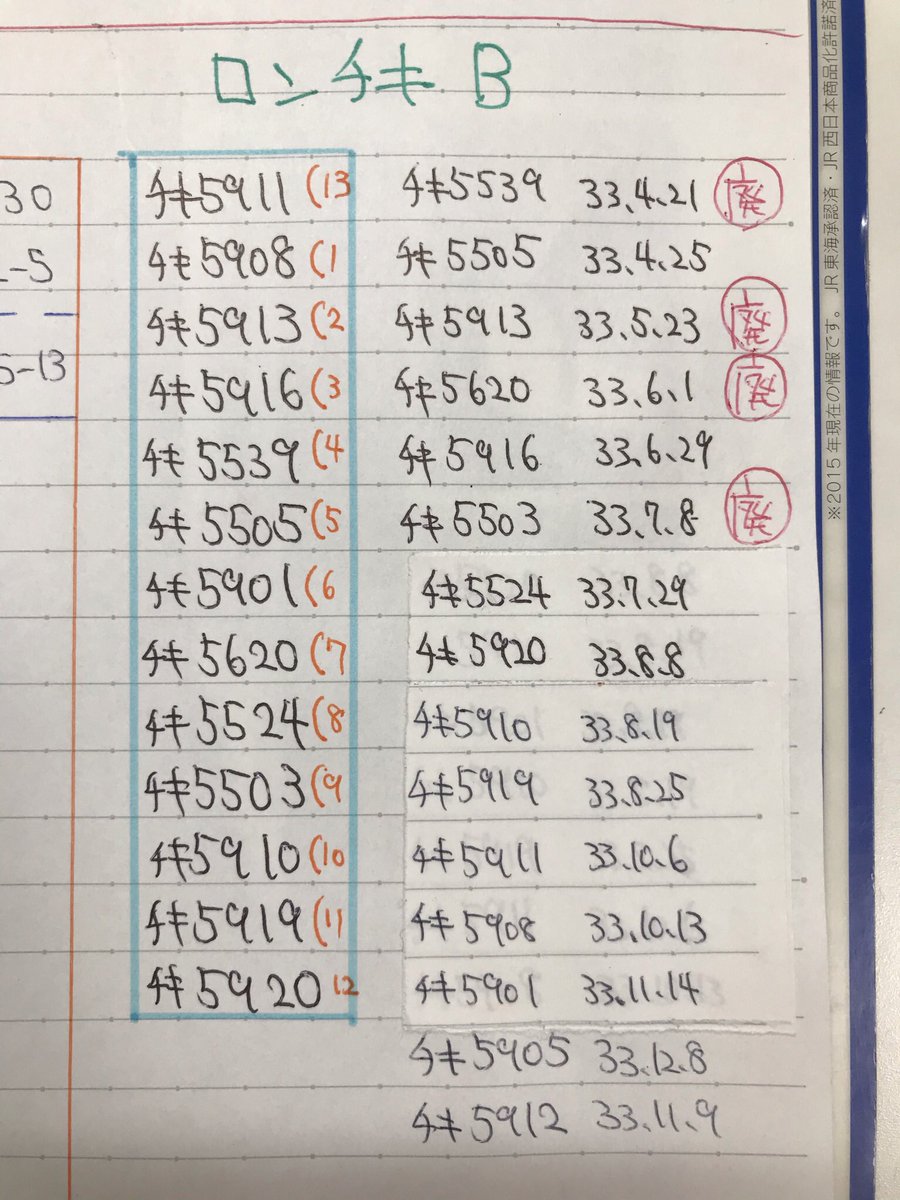 ロンチキ B
30
チキ5911 (13 チキ5539 33.4.21 廃
2-5
チキ5908 (1 チキ5505 33.4.25
チキ5913 (2 チキ5913 33.5.23 廃
5-13
チキ5916 (3 チキ5620 33.6.1 廃
チキ5539 (4 チキ5916 33.6.29
チキ5505 (5 チキ5503 33.7.8 廃
チキ5901 (6 チキ5524 33.7.29
チキ5620 (7 チキ5920 33.8.8
チキ5524 (8 チキ5910 33.8.19
チキ5503 (9 チキ5919 33.8.25
チキ5910 (10 チキ5911 33.10.6
チキ5919 (11 チキ5908 33.10.13
チキ5920 12 チキ5901 33.11.14
チキ5905 33.12.8
チキ5912 33.11.9
※2015年現在の情報です。 JR東海承認済・JR西日本商品化許諾済